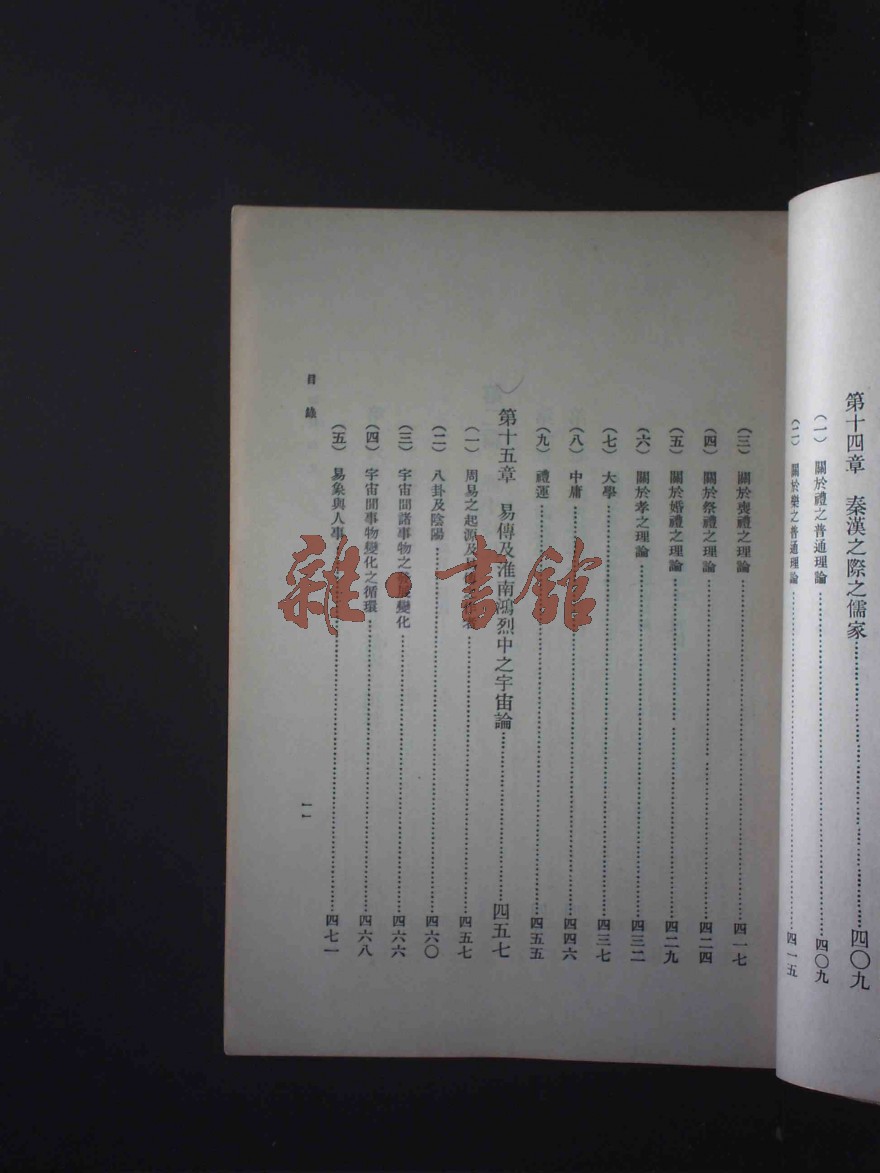 第十四章 秦漢之際之儒家……四〇九
（一）關於禮之普通理論……四〇九
（二）關於樂之普通理論……四一五
（三）關於喪禮之理論……四一七
（四）關於祭禮之理論……四二四
（五）關於婚禮之理論……四二九
（六）關於孝之理論……四三二
（七）大學……四三七
（八）中庸……四四六
（九）禮運……四五五
第十五章 易傳及淮南鴻烈中之宇宙論……四五七
（一）周易之起源及……四五七
（二）八卦及陰陽……四六〇
（三）宇宙間諸事物之變化……四六六
（四）宇宙間事物變化之循環……四六八
（五）易象與人事……四七一
目錄
一一
雜·書館